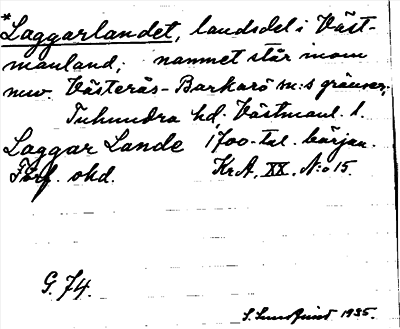 *Laggarlandet, landsdel i Väst-
manland; namnet står inom
nuv. Västerås-Barkarö sn:s gränser,
Tuhundra hd, Västmanl. l.
Laggar Lande 1700-tal. början.
Förf. okd. KrA, XX, N:o 15.
G. 74.
S. Lundqvist 1935.